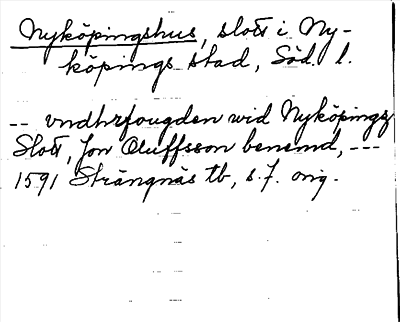 Nyköpingshus, slott i Ny-
köpings stad, Söd. l.
-- vndhrfougden wid Nyköpings
Slott, Jon Oluffsson benemd, ---
1591 Strängnäs tb, s. 7. orig.